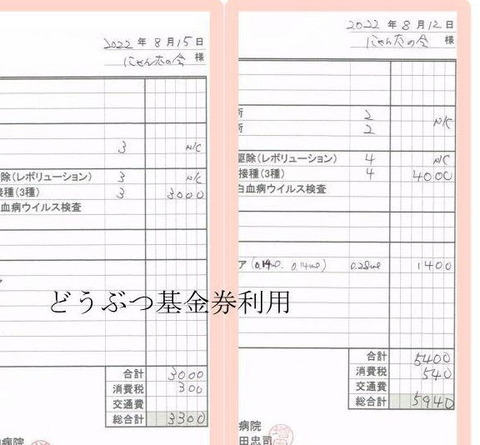 2022 年 8 月 15 日
にゃん太の会 様
3 N/C
除(レボリューション) 3 N/C
種(3種) 3 3000
血病ウイルス検査
合計 3000
消費税 300
交通費
総合計 3300
病院
2022 年 8 月 12 日
にゃん太の会 様
術 2
術 2 N/C
駆除(レボリューション) 4 N/C
接種(3種) 4 4000
白血病ウイルス検査
ア (0.14ml, 0.14ml) 0.28ml 1400
どうぶつ基金券利用
合計 5400
消費税 540
交通費
総合計 5940
病院
田忠司